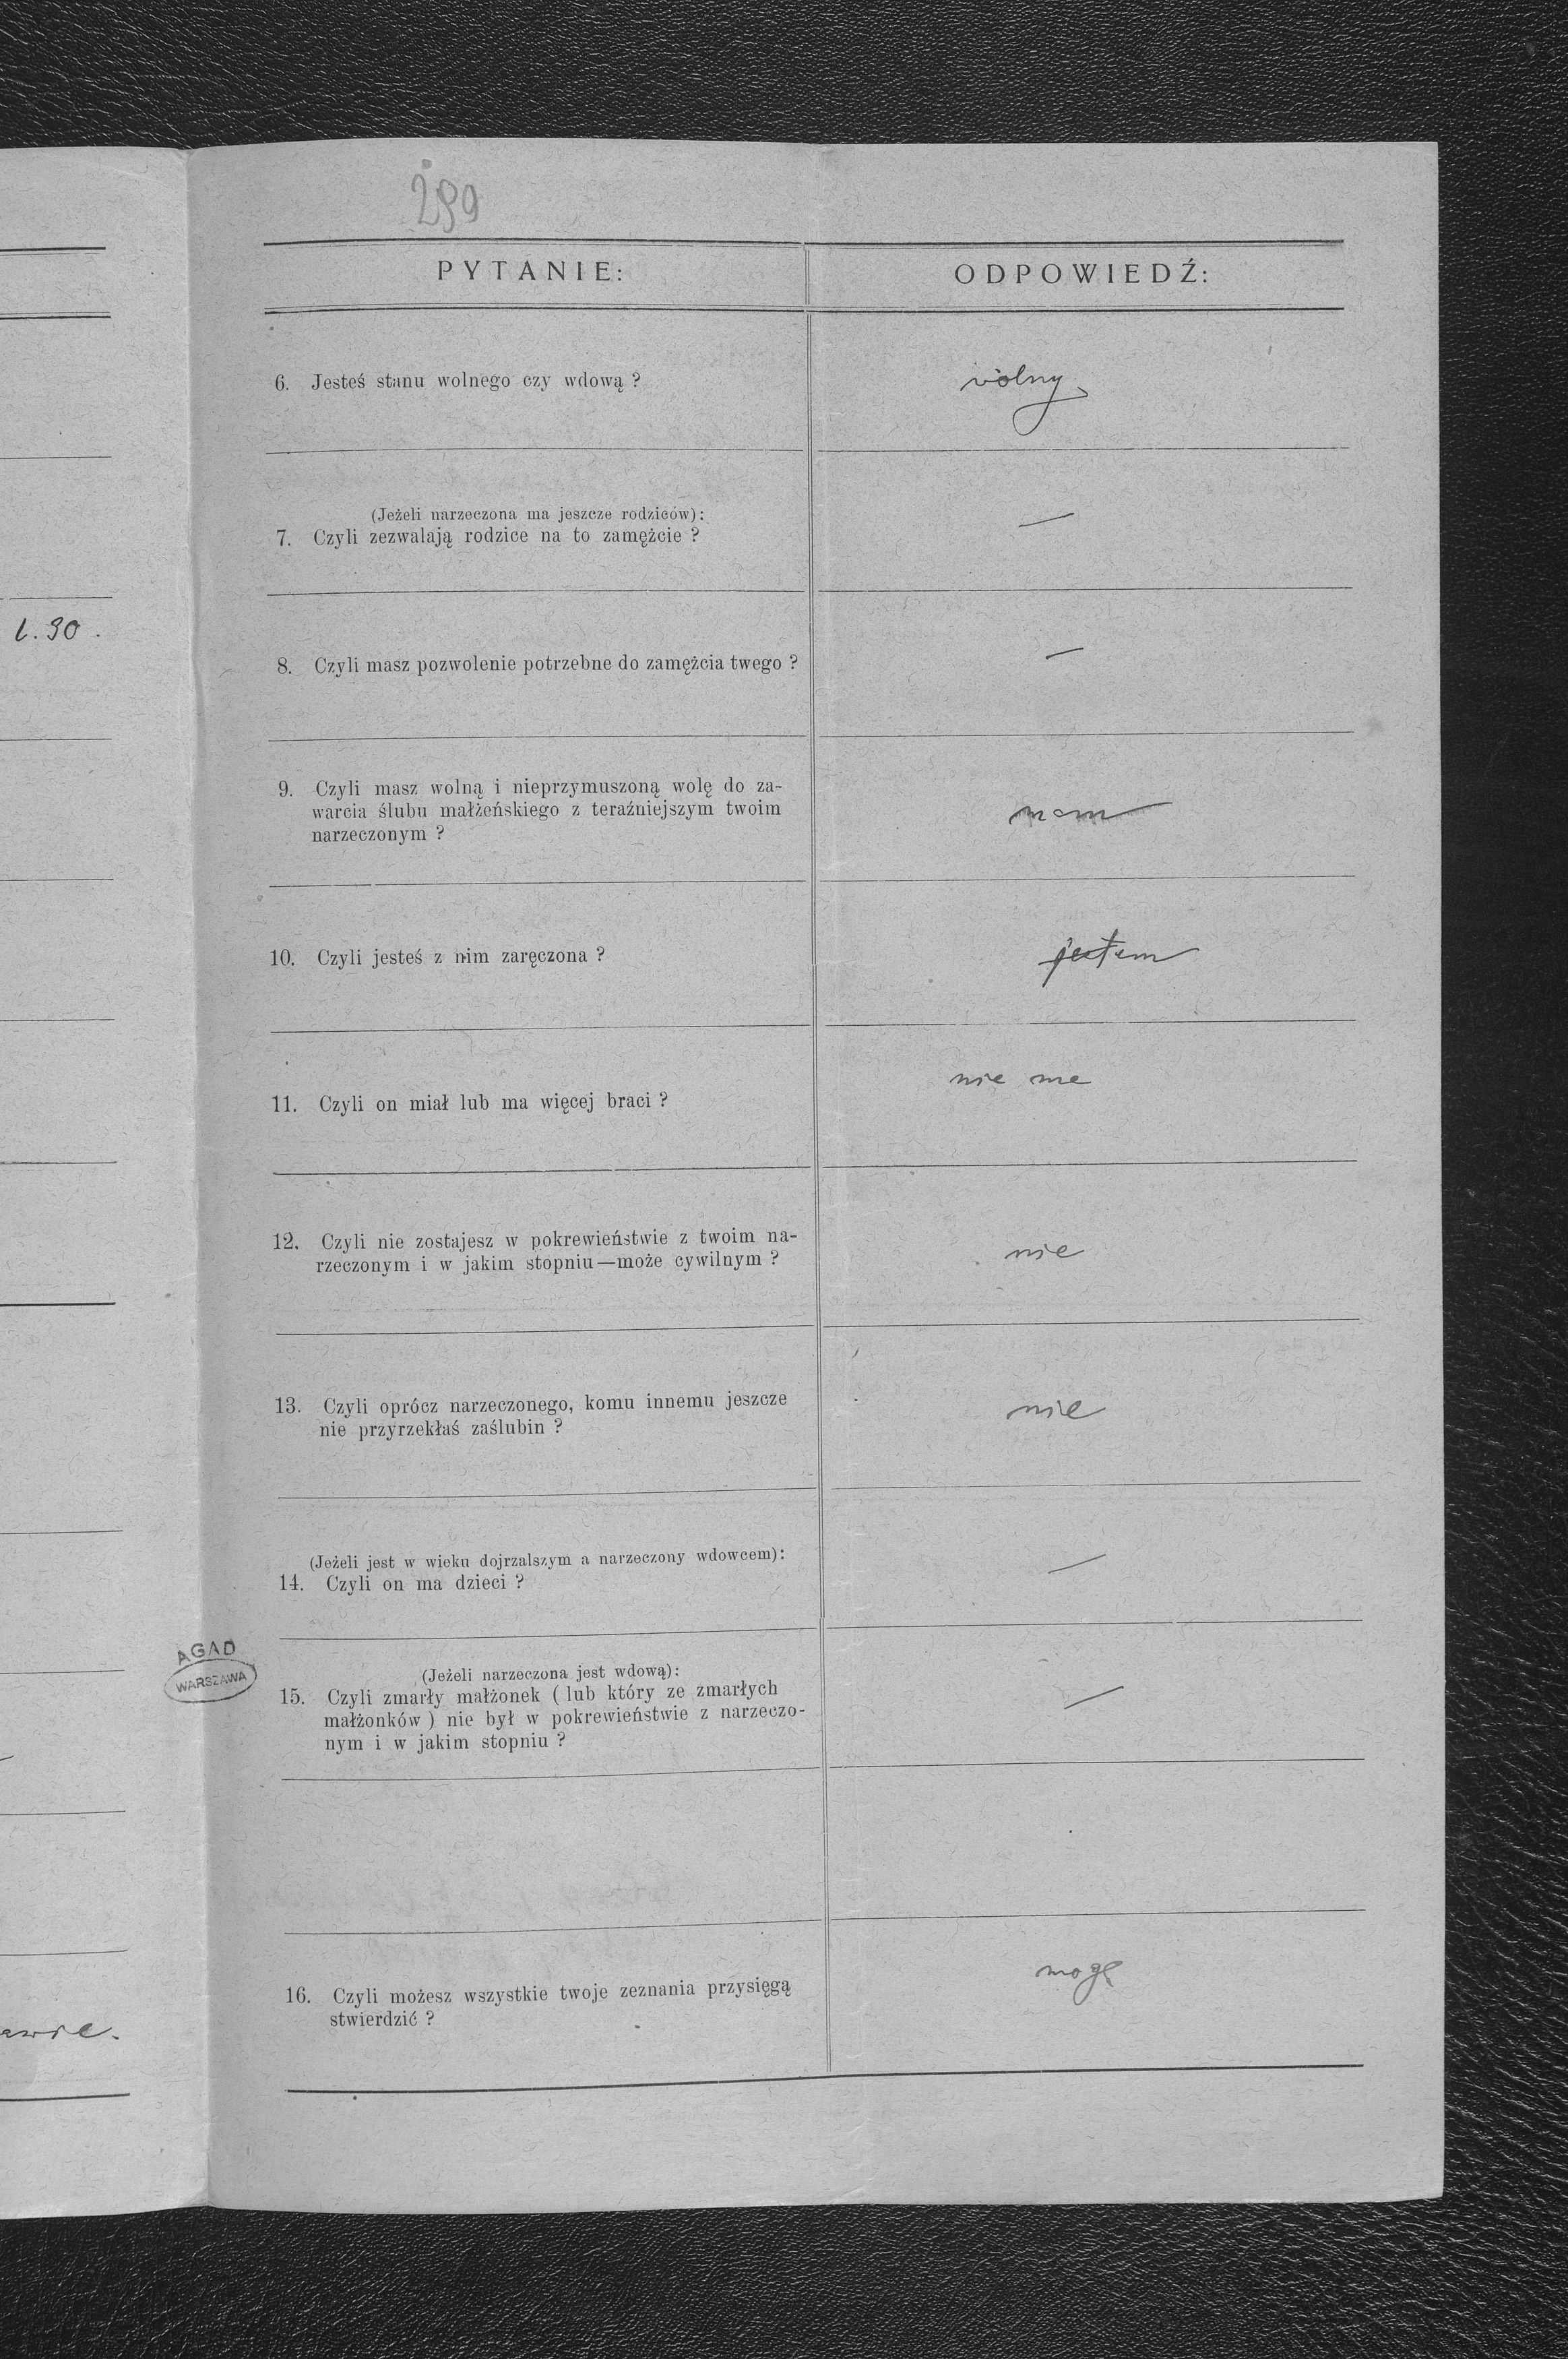 289
PYTANIE:
ODPOWIEDŹ:
6. Jesteś stanu wolnego czy wdową ?
wolny
(Jeżeli narzeczona ma jeszcze rodziców):
7. Czyli zezwalają rodzice na to zamężcie ?
—
l. 30.
8. Czyli masz pozwolenie potrzebne do zamężcia twego ?
—
9. Czyli masz wolną i nieprzymuszoną wolę do za-
warcia ślubu małżeńskiego z teraźniejszym twoim
narzeczonym ?
mam
10. Czyli jesteś z nim zaręczona ?
jestem
11. Czyli on miał lub ma więcej braci ?
nie ma
12. Czyli nie zostajesz w pokrewieństwie z twoim na-
rzeczonym i w jakim stopniu—może cywilnym ?
nie
13. Czyli oprócz narzeczonego, komu innemu jeszcze
nie przyrzekłaś zaślubin ?
nie
(Jeżeli jest w wieku dojrzalszym a narzeczony wdowcem):
14. Czyli on ma dzieci ?
—
AGAD
WARSZAWA
(Jeżeli narzeczona jest wdową):
15. Czyli zmarły małżonek ( lub który ze zmarłych
małżonków ) nie był w pokrewieństwie z narzeczo-
nym i w jakim stopniu ?
—
16. Czyli możesz wszystkie twoje zeznania przysięgą
stwierdzić ?
mogę